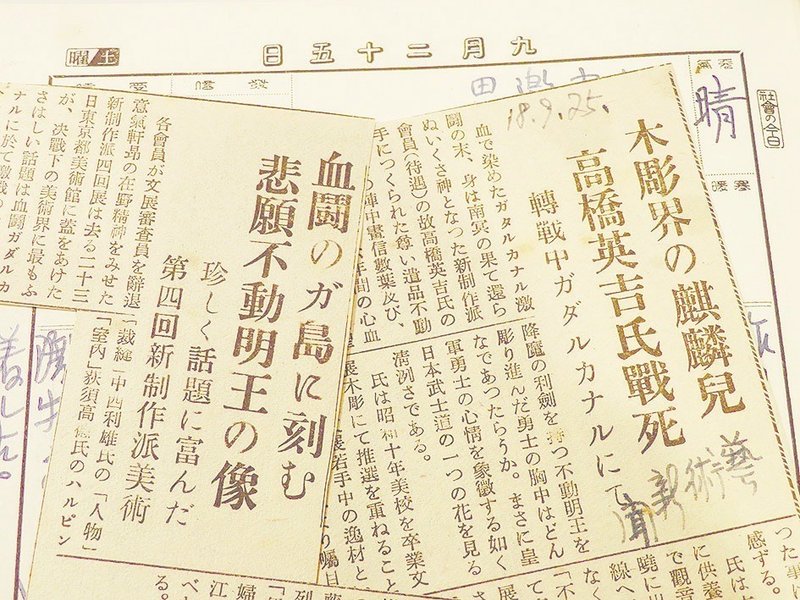 九月二十五日
土曜
社會の今日
晴
18.9.25.
木彫界の麒麟兒
高橋英吉氏戰死
轉戰中ガダルカナルにて
血で染めたガタルカナル激
闘の末、身は南冥の果て還ら
ぬいくさ神となつた新制作派
會員(待遇)の故高橋英吉氏の
手につくられた尊い遺品不動
陣中書信數葉及び、
年間の心血
降魔の利劍を持つ不動明王を
彫り進んだ勇士の胸中はどん
なであつたらうか。まさに皇
軍勇士の心情を象徴する如く
日本武士道の一つの花を見る
淸洌さである。
氏は昭和十年美校を卒業文
展木彫にて推選を重ねること
展若手中の逸材と
り囑目
つた事
感ずる。
氏は
に供養
で觀音
曉に出
線へ
なく
「不
血闘のガ島に刻む
悲願不動明王の像
珍しく話題に富んだ
第四回新制作派美術
各會員が文展審査員を辭退
意氣軒昂の在野精神をみせた
新制作派四回展は去る二十三
日東京都美術館に蓋をあけた
が、決戰下の美術界に最もふ
さはしい話題は血闘ガダルカ
ナルに於て激戰の
「裁縫」中西利雄氏の「人物」
「室内」荻須高德氏のハルビン